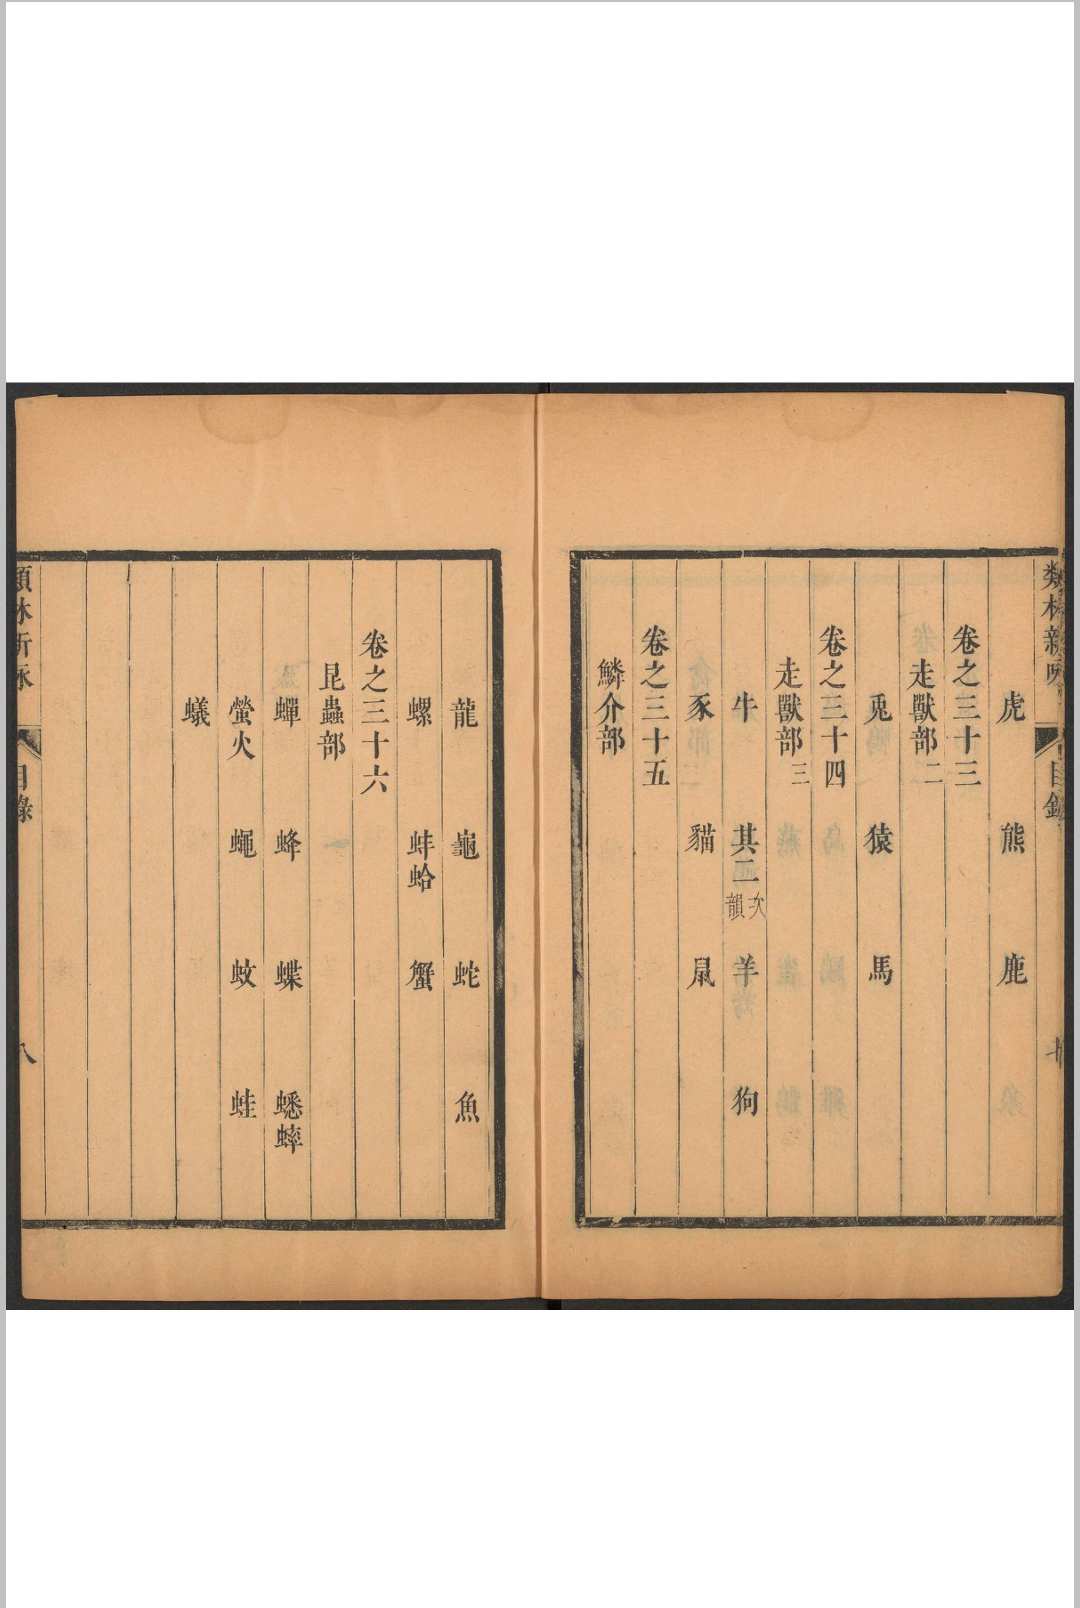 類林新咏
目錄
虎 熊 鹿
卷之三十三
走獸部二
兎 猿 馬
卷之三十四
走獸部三
牛 其二次韻 羊 狗
豕 貓 鼠
卷之三十五
鱗介部
龍 龜 蛇 魚
螺 蚌蛤 蟹
卷之三十六
昆蟲部
蟬 蜂 蝶 蟋蟀
螢火 蠅 蚊 蛙
蟻
類林新咏
目錄
八